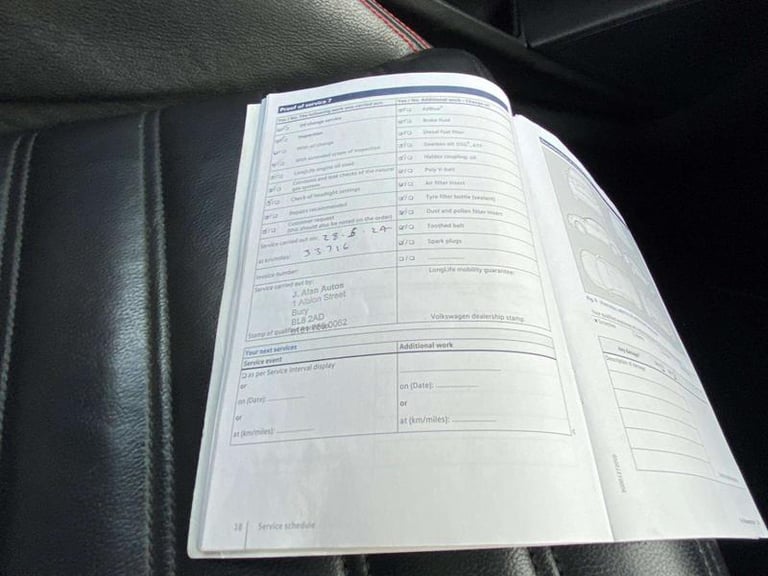 Proof of service 7
Yes / No The following work was carried out:
Oil change service
Inspection
With oil change
With extended scope of inspection
LongLife engine oil used
Corrosion and leak checks of the natural gas system
Check of headlight settings
Repairs recommended
Customer request
(this should also be noted on the order)
Service carried out on: 28.5.24
at km/miles: 33716
Invoice number:
Service carried out by:
J. Afan Autos
1 Albion Street
Bury
BL8 2AD
Stamp of
Yes / No Additional work - Change of
AdBlue®
Brake fluid
Diesel fuel filter
Gearbox oil DSG®, ATF
Haldex coupling oil
Poly V-belt
Air filter insert
Tyre filler bottle (sealant)
Dust and pollen filter insert
Toothed belt
Spark plugs
LongLife mobility guarantee:
Volkswagen dealership stamp
Your next services
Service event
as per Service interval display
or
on (Date):
or
at (km/miles):
Additional work
on (Date):
or
at (km/miles):
38 Service schedule